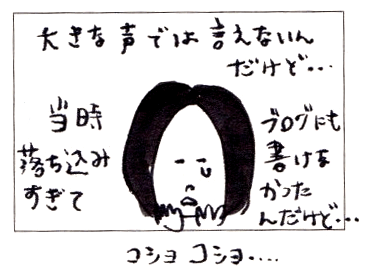 大きな声では言えないん
だけど・・・
当時
落ち込み
すぎて
ブログにも
書けな
かった
んだけど・・・
コショコショ・・・・